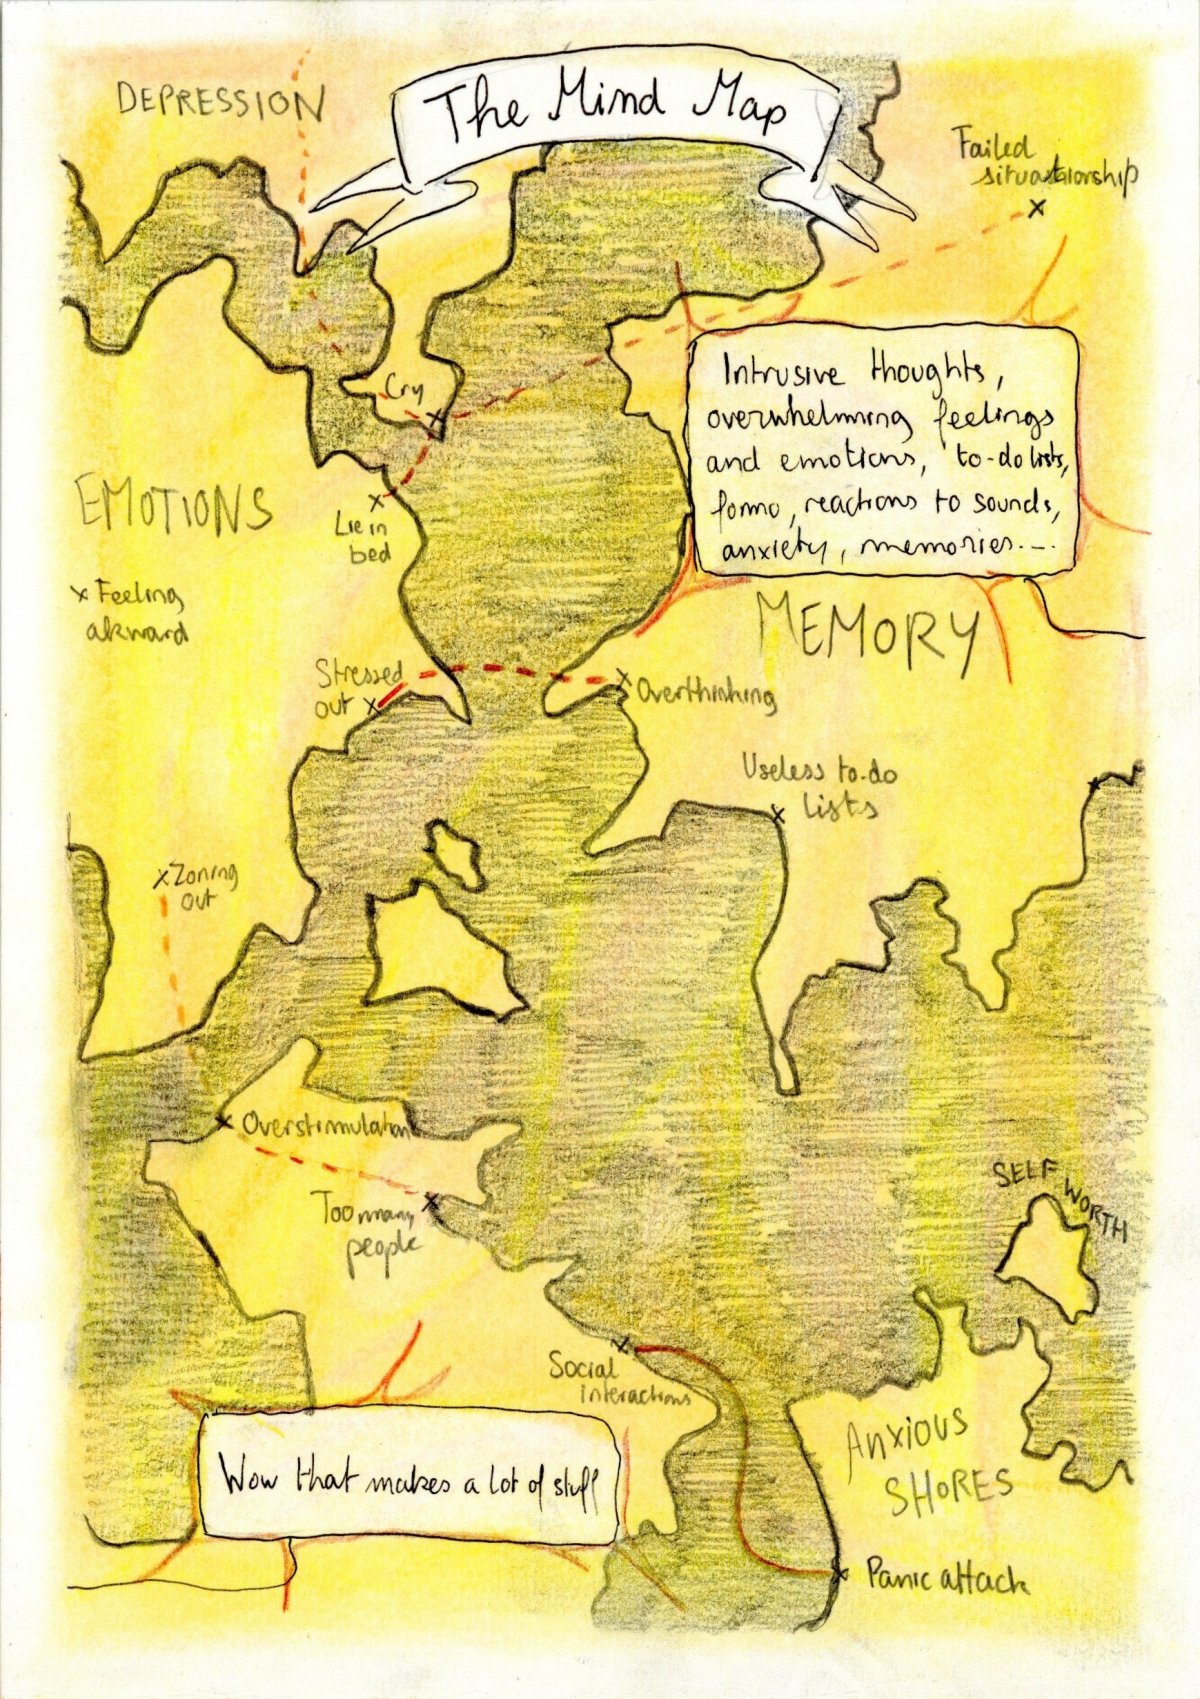 The Mind Map
DEPRESSION
Failed
situationship
Cry
Intrusive thoughts,
overwhelming feelings
and emotions, to-do lists,
fomo, reactions to sounds,
anxiety, memories...
EMOTIONS
Lie in
bed
Feeling
akward
MEMORY
Stressed
out
Overthinking
Useless to-do
lists
Zoning
out
Overstimulation
Too many
people
SELF WORTH
Social
interactions
ANXIOUS
SHORES
Wow that makes a lot of stuff
Panic attack